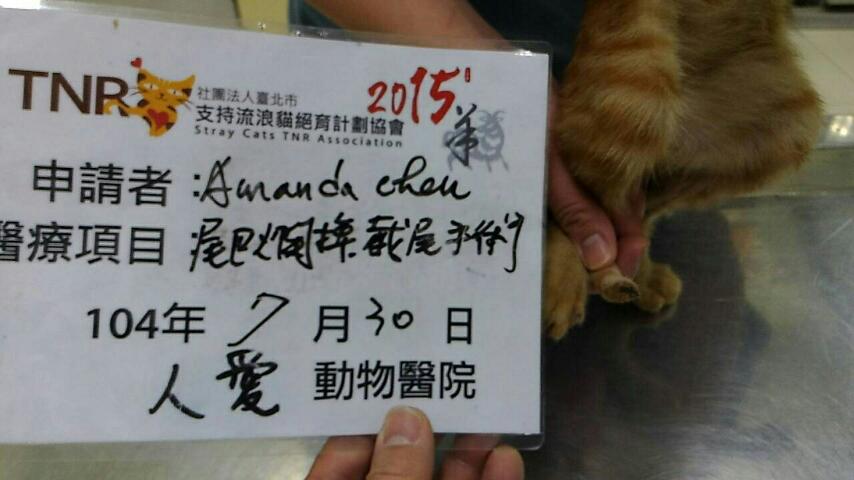 TNR
社團法人臺北市
支持流浪貓絕育計劃協會
Stray Cats TNR Association
2015
申請者:Amanda chen
醫療項目:尾巴爛掉截尾手術
104年 7月30日
人愛 動物醫院